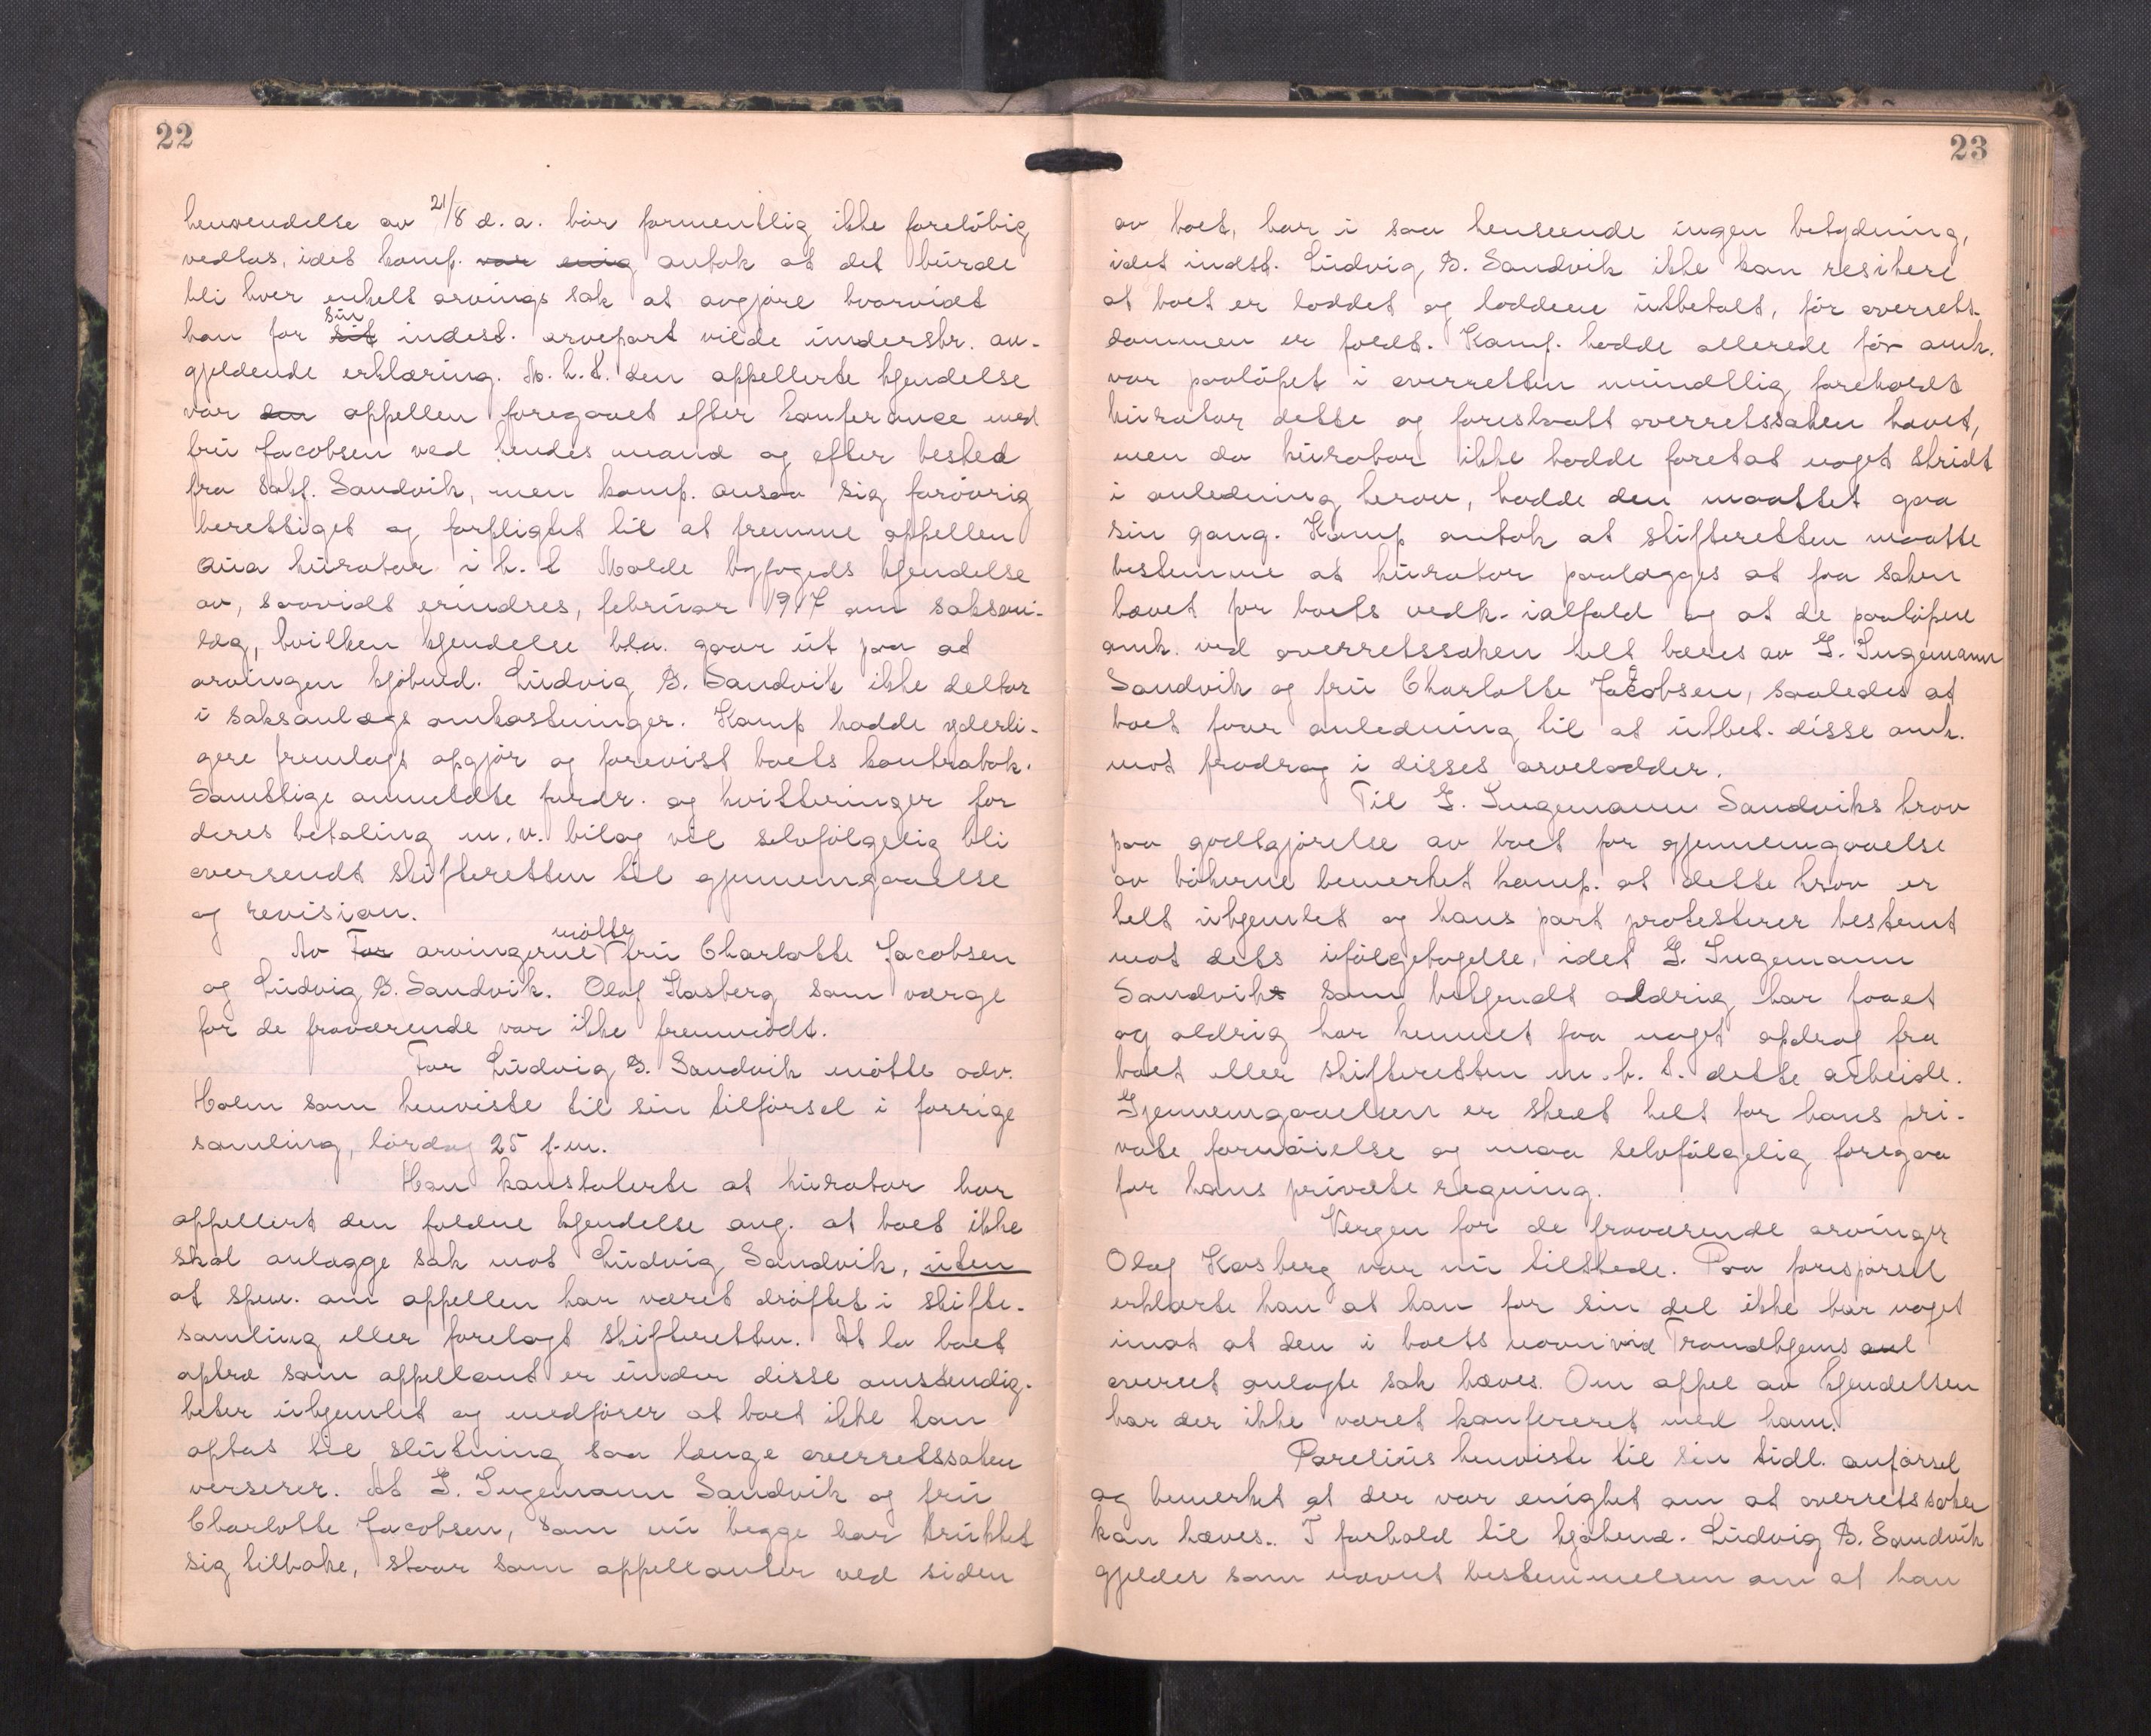 22
henvendelse av 21/8 d. a. bör formentlig ikke foreløbig
vedtas, idet komp. var enig antok at det burde
bli hver enkelt arvings sak at avgjøre hvorvidt
han for sit sin indest. arvepart vilde underskr. an-
gjeldende erklæring. M. h. t. den appellerte kjendelse
var den appellen foregaaet efter konferanse med
fru Jacobsen ved hendes mand og efter besked
fra sakf. Sandvik, men komp. ansaa sig forövrig
berettiget og forpligtet til at fremme appellen
qua kurator i h. t. Molde byfogeds kjendelse
av, saavidt erindres, februar 1917 om saksan-
læg, hvilken kjendelse bl.a. gaar ut paa at
arvingen kjöbmd. Ludvig B. Sandvik ikke deltar
i saksanlægs omkostninger. Komp hadde yderli-
gere fremlagt opgjör og forevist boets kontrabok.
Samtlige anmeldte fordr. og kvitteringer for
deres betaling m. v. bilag vil selvfölgelig bli
oversendt skifteretten til gjennemgaaelse
og revision.
Av For arvingerne mötte fru Charlotte Jacobsen
og Ludvig B. Sandvik. Olaf Kosberg som værge
for de fraværende var ikke fremmödt.
For Ludvig B. Sandvik mötte adv.
Holm som henviste til sin tilförsel i forrige
samling, lördag 25 f.m.
Han konstaterte at kurator har
appellert den faldne kjendelse ang. at boet ikke
skal anlægge sak mot Ludvig Sandvik, uten
at spm. om appellen har været dröftet i skifte-
samling eller forelagt skifteretten. At la boet
optræ som appellant er under disse omstendig-
heter uhjemlet og medförer at boet ikke kan
optas til slutning saa længe overretssaken
verserer. At G. Ingemann Sandvik og fru
Charlotte Jacobsen, som nu begge har trukket
sig tilbake, staar som appellanter ved siden
23
av boet, har i saa henseende ingen betydning,
idet indst. Ludvig B. Sandvik ikke kan risikere
at boet er loddet og loddene utbetalt, før overrets-
dommen er faldt. Komp. hadde allerede för omk.
var paalöpet i overretten mundtlig foreholdt
kurator dette og foreslaatt overretssaken hævet,
men da kurator ikke hadde foretat noget skridt
i anledning herav, hadde den maattet gaa
sin gang. Komp antok at skifteretten maatte
bestemme at kurator paalægges at faa saken
hævet for boets vedk. ialfald og at de paalöpne
omk. ved overretssaken helt bæres av G. Ingemann
Sandvik og fru Charlotte Jacobsen, saaledes at
boet faar anledning til at utbet. disse omk.
mot fradrag i disses arvelodder.
Til G. Ingemann Sandviks krav
paa godtgjörelse av boet for gjennemgaaelse
av bökerne bemerket komp. at dette krav er
helt uhjemlet og hans part protesterer bestemt
mot dets ifölgetagelse, idet G. Ingemann
Sandviks som bekjendt aldrig har faaet
og aldrig har kunnet faa noget opdrag fra
boet eller skifteretten m. h. t. dette arbeide.
Gjennemgaaelsen er skeet helt for hans pri-
vate fornöielse og maa selvfölgelig foregaa
for hans private regning.
Vergen for de fraværende arvinger
Olaf Kosberg var nu tilstede. Paa forespörsel
erklærte han at han for sin del ikke har noget
imot at den i boets navn ved Trondhjems aul
overret anlagte sak hæves. Om appel av kjendelsen
har der ikke været konfereret med ham.
Parelius henviste til sin tidl. anförsel
og bemerket at der var enighet om at overretssaken
kan hæves. I forhold til kjöbmd. Ludvig B. Sandvik
gjelder som nævnt bestemmelsen om at han